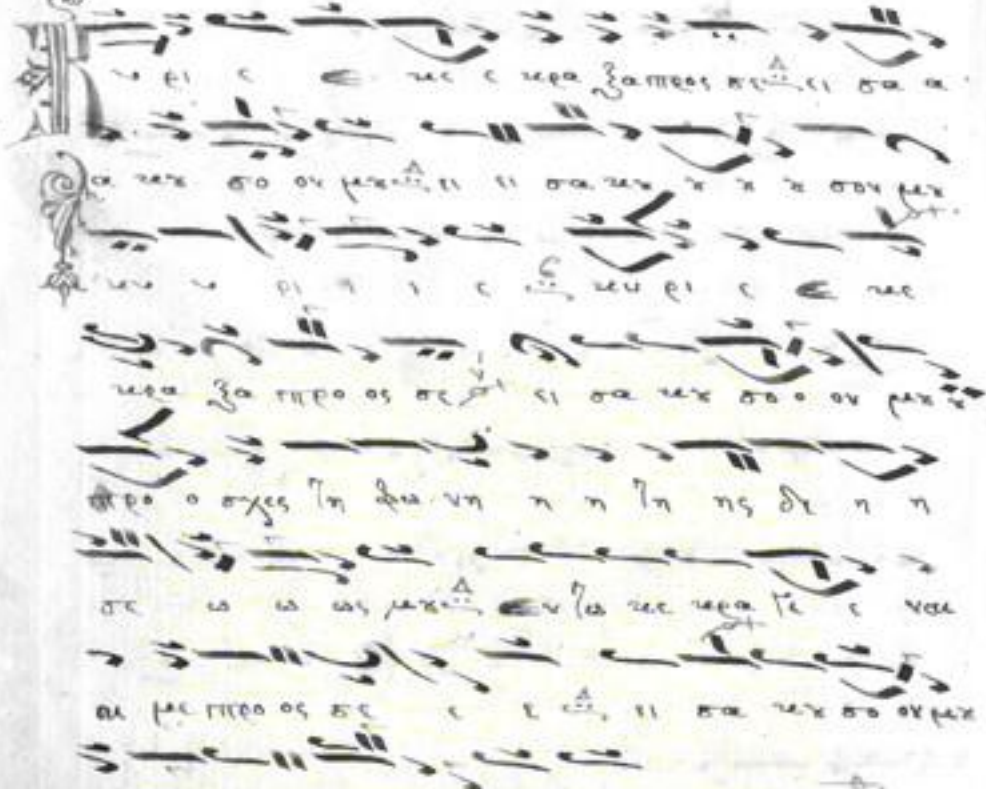 Κ υ ρι ε ε κε ε κρα ξα προς σε ει σα α
α κου σο ον μου ει ει σα κου ου ου ου σον μου
κυ υ ρι ι ι ε κυ ρι ε ε κε
κρα ξα προ ος σε ει σα κου σο ο ον μου ου
προ ο σχες τη φω νη η η τη ης δε η η
σε ω ω ως μου εν τω κε κρα γε ε ναι
αι με προ ος σε ε ε ει σα κου σο ον μου